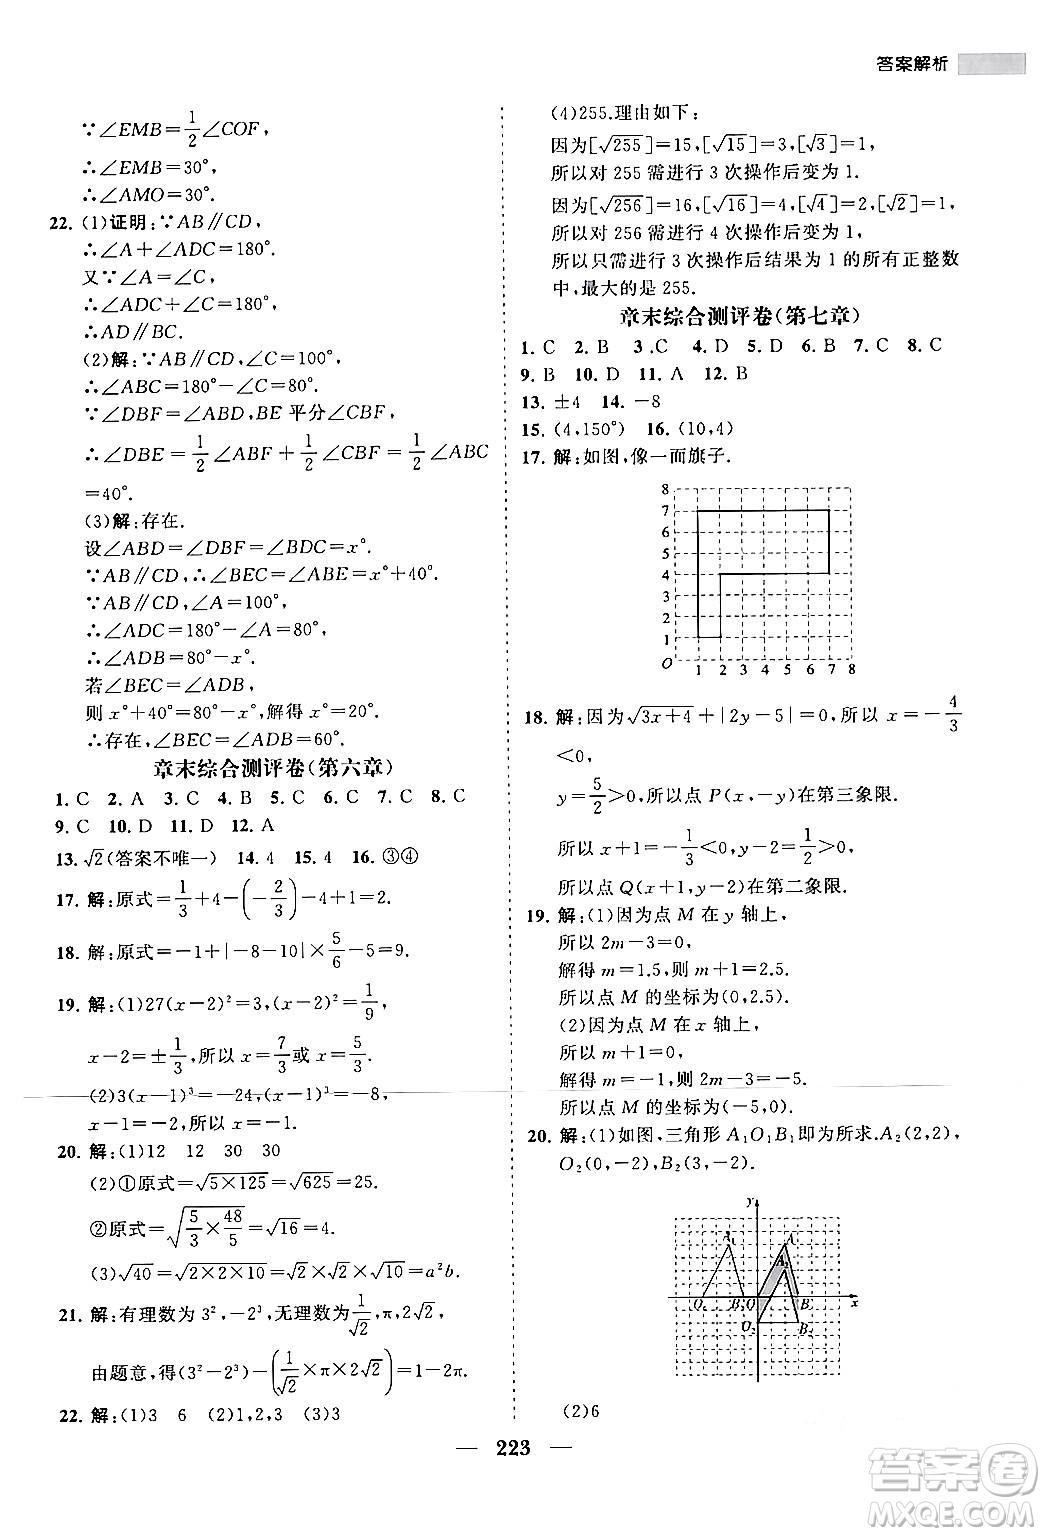 答案解析
∵∠EMB=1/2∠COF,
∴∠EMB=30°.
∴∠AMO=30°.
22. (1)证明:∵AB∥CD,
∴∠A+∠ADC=180°.
又∵∠A=∠C,
∴∠ADC+∠C=180°.
∴AD∥BC.
(2)解:∵AB∥CD,∠C=100°,
∴∠ABC=180°-∠C=80°.
∵∠DBF=∠ABD,BE平分∠CBF,
∴∠DBE=1/2∠ABF+1/2∠CBF=1/2∠ABC
=40°.
(3)解:存在.
设∠ABD=∠DBF=∠BDC=x°.
∵AB∥CD,∴∠BEC=∠ABE=x°+40°.
∵AB∥CD,∠A=100°,
∴∠ADC=180°-∠A=80°.
∴∠ADB=80°-x°.
若∠BEC=∠ADB,
则x°+40°=80°-x°,解得x°=20°.
∴存在,∠BEC=∠ADB=60°.
章末综合测评卷(第六章)
1. C 2. A 3. C 4. C 5. B 6. C 7. C 8. C
9. C 10. D 11. D 12. A
13. √2(答案不唯一) 14. 4 15. 4 16. ③④
17. 解:原式=1/3+4-(-2/3)-3=2.
18. 解:原式=-1+|-8-10|×5/6-5=9.
19. 解:(1)27(x-2)²=3,(x-2)²=1/9,
x-2=±1/3,所以x=7/3或x=5/3.
(2)3(x-1)³=-24,(x-1)³=-8,
x-1=-2,所以x=-1.
20. 解:(1)12 12 30 30
(2)①原式=√(5×125)=√625=25.
②原式=√(5/3×48/5)=√16=4.
(3)√40=√(2×2×10)=√2×√2×√10=a²b.
21. 解:有理数为3²,-2³,无理数为1/√2,π,2√2,
由题意,得(3²-2³)-(1/√2×π×2√2)=1-2π.
22. 解:(1)3 6 (2)1,2,3 (3)3
(4)255.理由如下:
因为[√255]=15,[√15]=3,[√3]=1,
所以对255需进行3次操作后变为1.
因为[√256]=16,[√16]=4,[√4]=2,[√2]=1,
所以对256需进行4次操作后变为1,
所以只需进行3次操作后结果为1的所有正整数
中,最大的是255.
章末综合测评卷(第七章)
1. C 2. B 3. C 4. D 5. D 6. B 7. C 8. C
9. B 10. D 11. A 12. B
13. ±4 14. -8
15. (4,150°) 16. (10,4)
17. 解:如图,像一而旗子.
8
7
6
5
4
3
2
1
O 1 2 3 4 5 6 7 8
18. 解:因为√(3x+4)+|2y-5|=0,所以x=-4/3
<0,
y=5/2>0,所以点P(x,-y)在第三象限.
所以x+1=-1/3<0,y-2=1/2>0,
所以点Q(x+1,y-2)在第二象限.
19. 解:(1)因为点M在y轴上,
所以2m-3=0,
解得m=1.5,则m+1=2.5.
所以点M的坐标为(0,2.5).
(2)因为点M在x轴上,
所以m+1=0.
解得m=-1,则2m-3=-5.
所以点M的坐标为(-5,0).
20. 解:(1)如图,三角形A₁O₁B₁即为所求.A₂(2,2),
O₂(0,-2),B₂(3,-2).
y
A₁ A
A₂
O₁ B₁ O B x
O₂ B₂
(2)6
— 223 —
答案圈
MXQE.COM